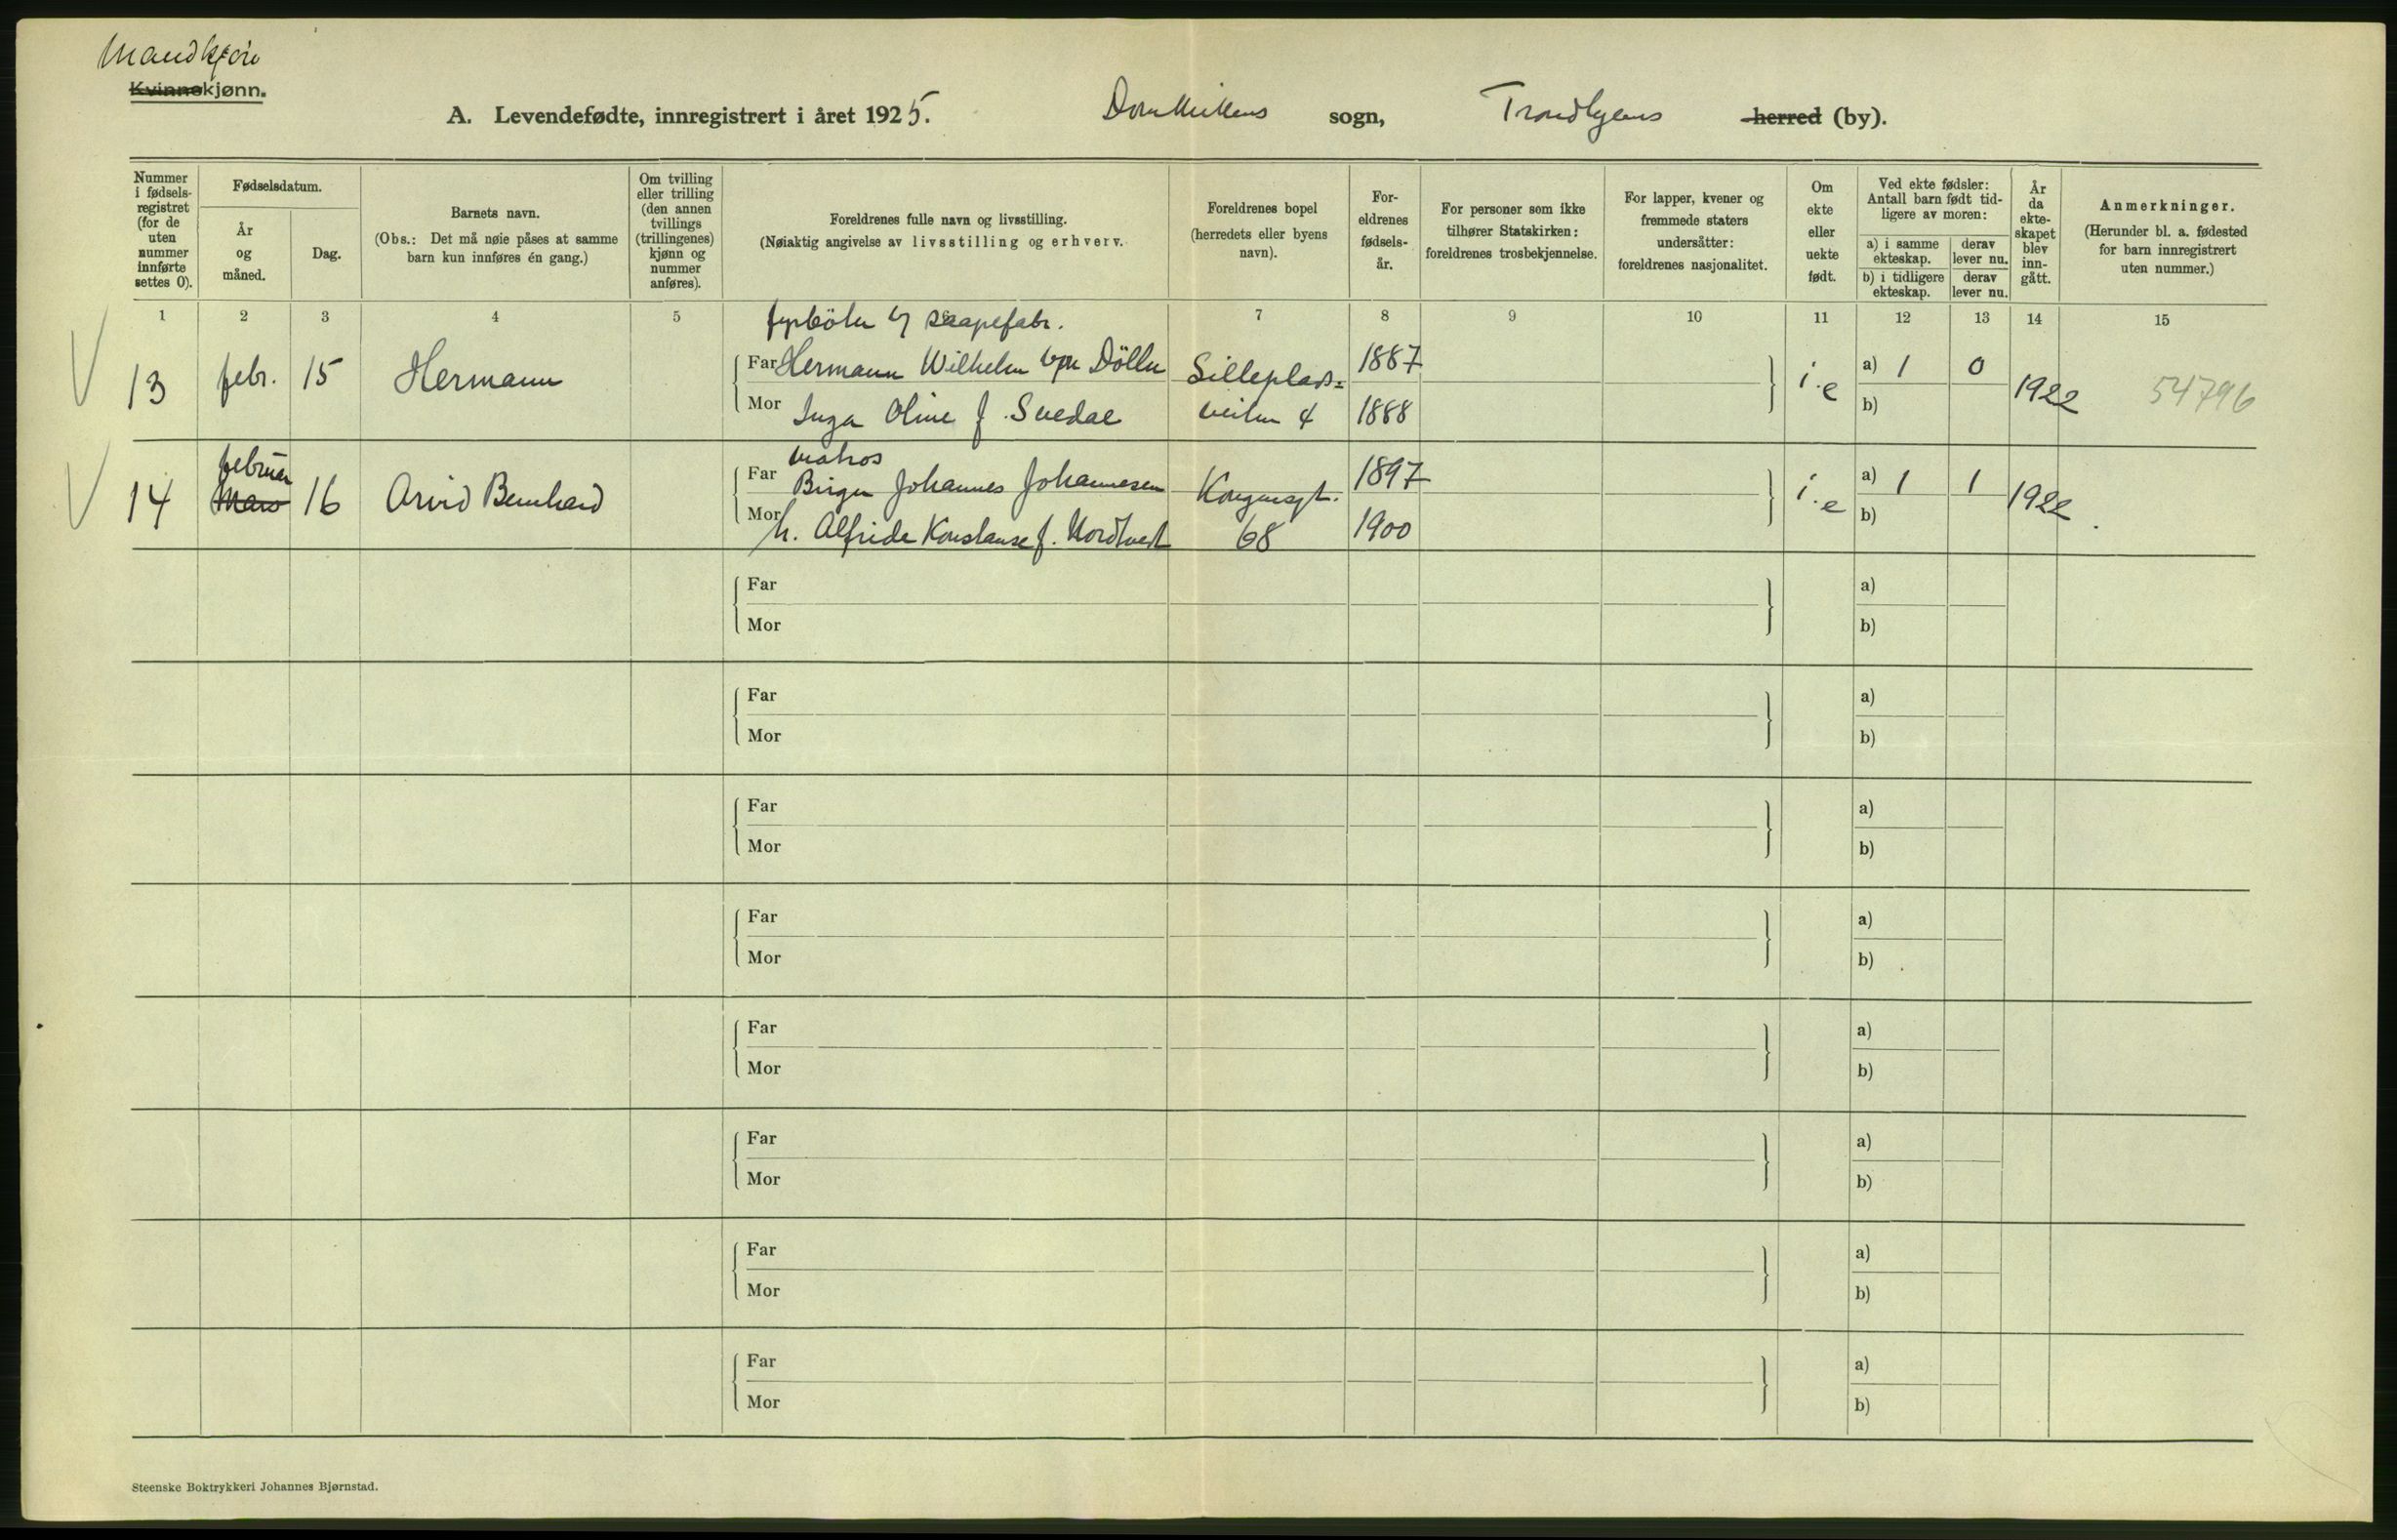 Mandkjøn
Kvinnekjønn.
A. Levendefødte, innregistrert i året 1925. Domkirkens sogn, Trondhjems herred (by).
Nummer i fødselsregistret (for de uten nummer innførte settes 0).
Fødselsdatum.
År og måned.
Dag.
Barnets navn.
(Obs.: Det må nøie påses at samme barn kun innføres én gang.)
Om tvilling eller trilling (den annen tvillings (trillingenes) kjønn og nummer anføres).
Foreldrenes fulle navn og livsstilling.
(Nøiaktig angivelse av livsstilling og erhverv.
Foreldrenes bopel (herredets eller byens navn).
Foreldrenes fødselsår.
For personer som ikke tilhører Statskirken: foreldrenes trosbekjennelse.
For lapper, kvener og fremmede staters undersåtter: foreldrenes nasjonalitet.
Om ekte eller uekte født.
Ved ekte fødsler: Antall barn født tidligere av moren:
a) i samme ekteskap.
derav lever nu.
b) i tidligere ekteskap.
derav lever nu.
År da ekteskapet blev inngått.
Anmerkninger.
(Herunder bl. a. fødested for barn innregistrert uten nummer.)
1 2 3 4 5 7 8 9 10 11 12 13 14 15
fyrbøter
13 febr. 15 Hermann Far Hermann Wilhelm Silleplads= 1887 i.e a) 1 0 1922 54796
Mor Inga Oline f. veiten 4 1888 b)
februar matros
14 Mars 16 Arvid Bernhard Far Birger Johannes Johannesen Kongensgt. 1897 i.e a) 1 1 1922
Mor h. Alfride Konstanse f. Nordtvedt 68 1900 b)
Far a)
Mor b)
Far a)
Mor b)
Far a)
Mor b)
Far a)
Mor b)
Far a)
Mor b)
Far a)
Mor b)
Far a)
Mor b)
Far a)
Mor b)
Steenske Boktrykkeri Johannes Bjørnstad.